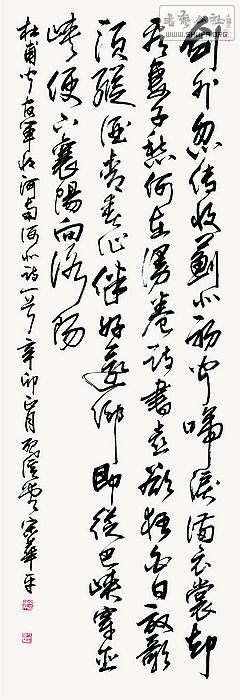 劍外忽傳收薊北初聞啼淚滿衣裳却
看妻子愁何在漫卷詩書喜欲狂白日放歌
須縱酒青春作伴好還鄉即從巴峽穿巫
峽便下襄陽向洛陽
杜甫聞官軍收河南河北詩一首辛卯正月宋華平
WWW.SHUFA.ORG